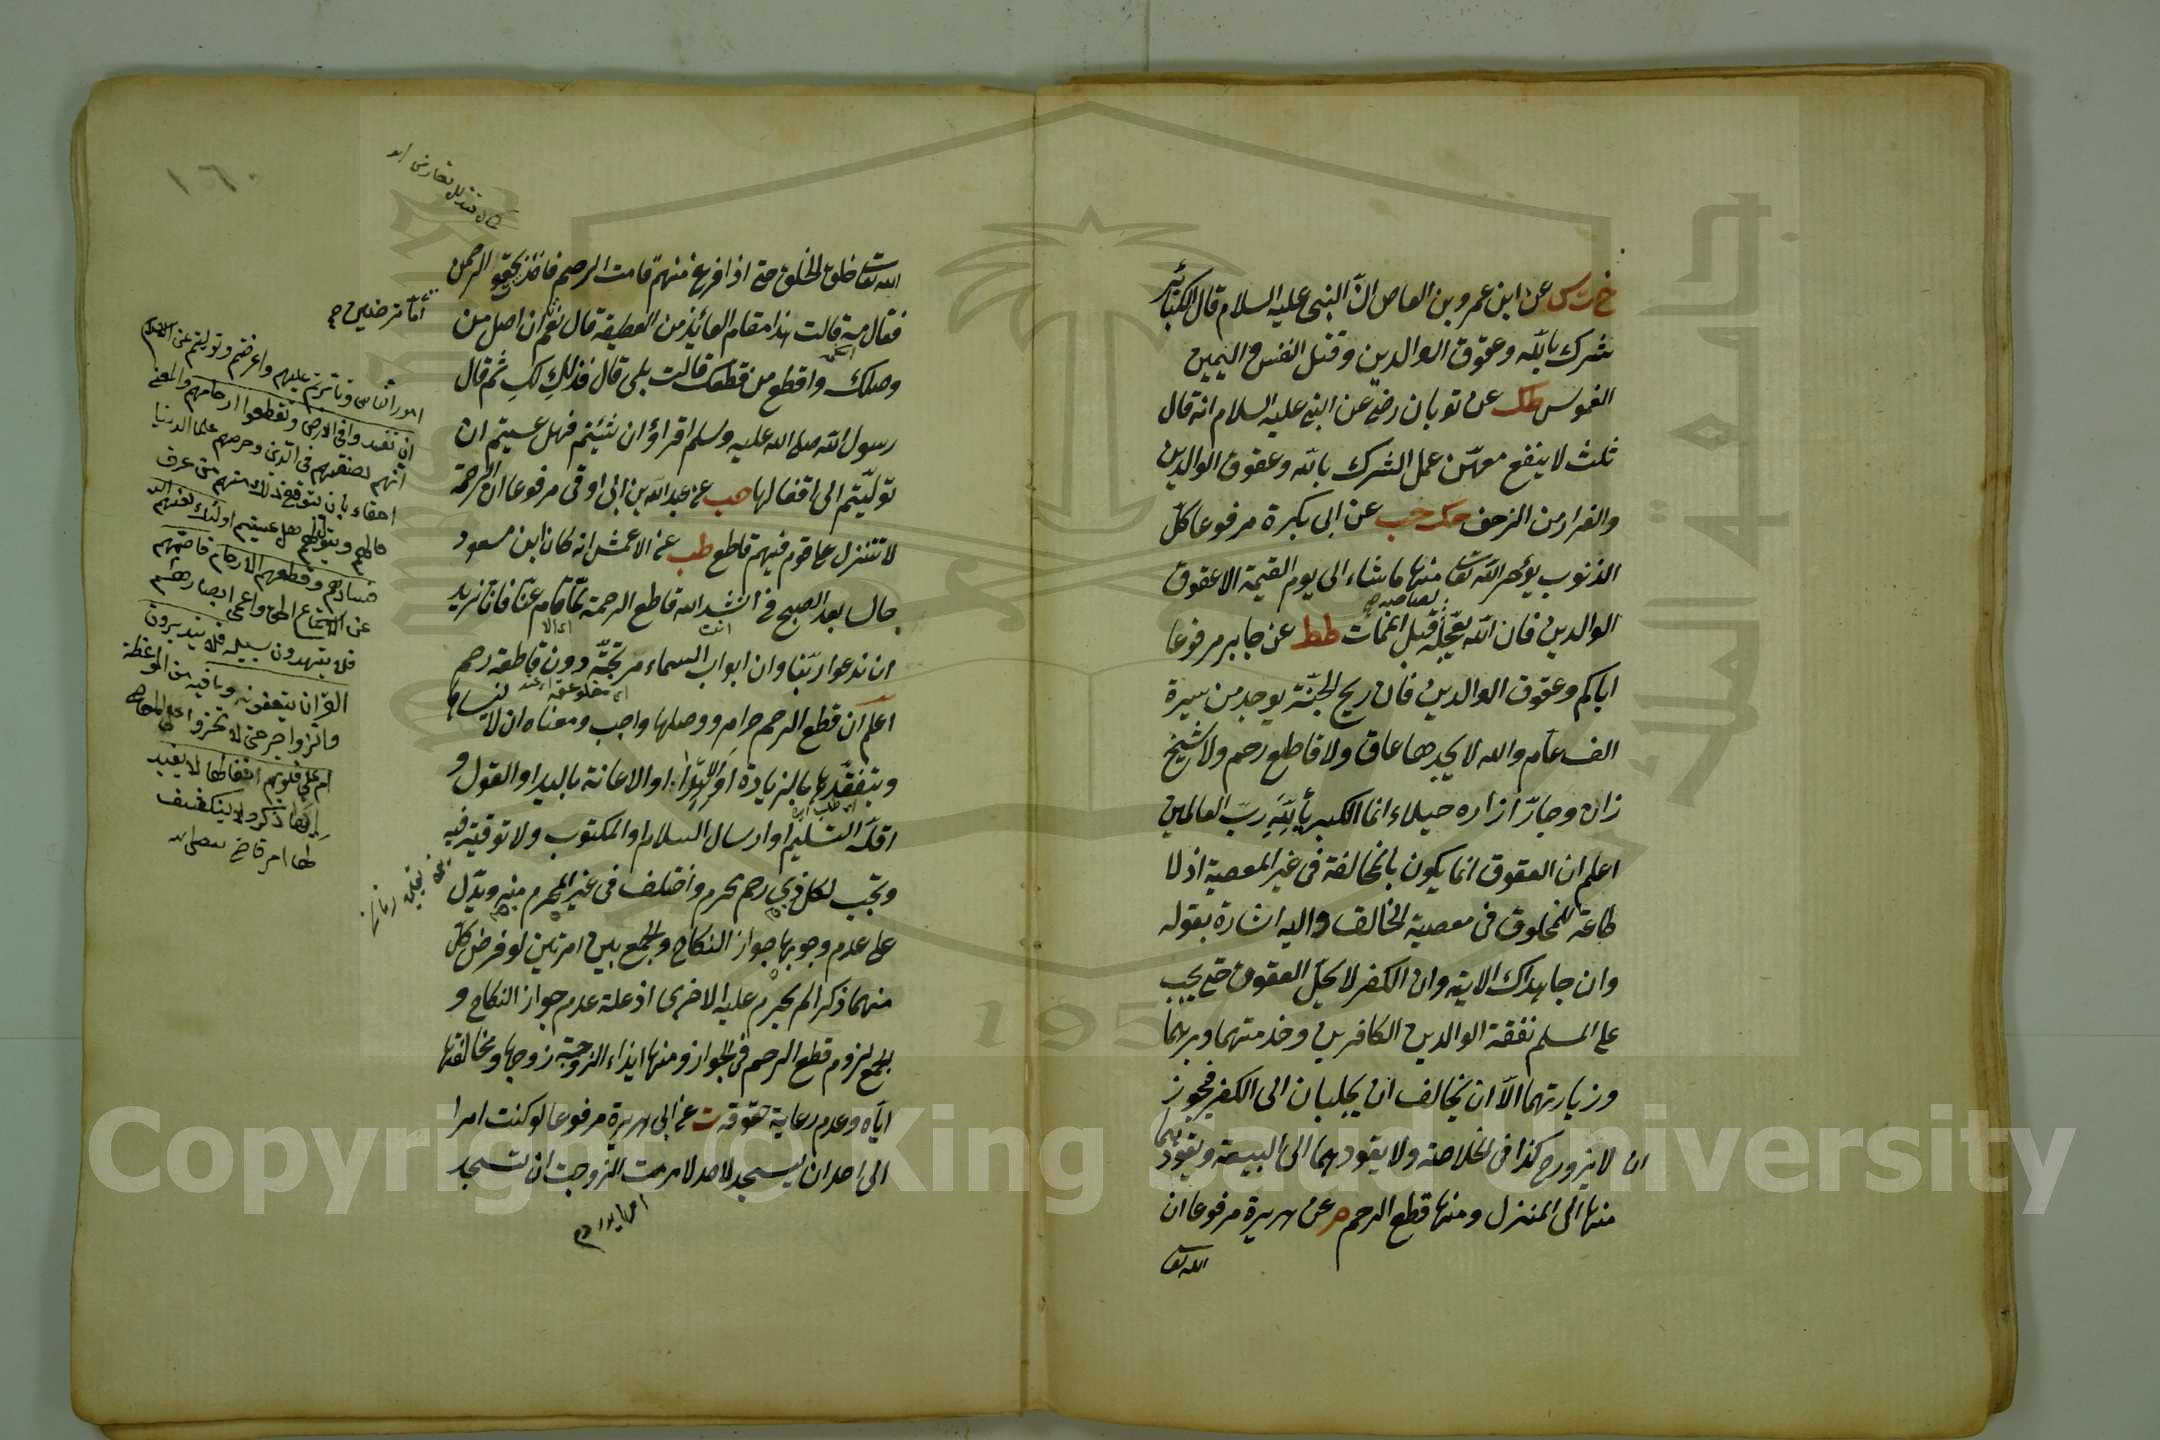 خ ت س عن ابن عمرو بن العاص ان النبى عليه السلام قال الكبائر
شرك بالله وعقوق الوالدين وقتل النفس واليمين
الغموس طك عن ثوبان رضى عن النبى عليه السلام انه قال
ثلث لا ينفع معهن عمل الشرك بالله وعقوق الوالدين
والفرار من الزحف حك حب عن ابى بكرة مرفوعا كل
الذنوب يؤخر الله تعا منها ما شاء الى يوم القيمة الا عقوق
لصاحبه
الوالدين فان الله يعجله قبل الممات طط عن جابر مرفوعا
اياكم وعقوق الوالدين فان ريح الجنة يوجد من سيرة
الف عام والله لا يجدها عاق ولا قاطع رحم ولا شيخ
زان وجار ازاره خيلاء انما الكبرياء لله رب العالمين
اعلم ان العقوق انما يكون بالمخالفة فى غير المعصية اذ لا
طاعة للمخلوق فى معصية الخالق واليه اشارة بقوله
وان جاهداك الاية وان الكفر لا يحل العقوق حتى يجب
على المسلم نفقة الوالدين الكافرين وخدمتهما وبرهما
وزيارتهما الا ان يخالف ان يجلبان الى الكفر فيجوز
ان لا يزورح كذا فى الخلاصة ولا يقود بهما الى البيعة ويقود بهما
منها الى المنزل ومنها قطع الرحم خ م عن هريرة مرفوعا ان
الله تعا
الله تعا خلق الخلق حتى اذا فرغ منهم قامت الرحم فاخذ بحقو الرحمن
فقال مه قالت هذا مقام العائذ من القطيعة قال نعم اما ترضين ان اصل من
وصلك واقطع من قطعك قالت بلى قال فذلك لك ثم قال
رسول الله صلى الله عليه وسلم اقراؤا ان شئتم فهل عسيتم ان
توليتم الى اقفالها صب عن عبد الله بن ابى اوفى مرفوعا ان الرحمة
لا تتنزل على قوم فيهم قاطع طب عن الاعمش انه كان ابن مسعود
جالس بعد الصبح فى انشد الله قاطع الرحمة لما قام عنا فانا نريد
ان ندعوا ربنا وان ابواب السماء مرتجة دون قاطعة رحم
اعلم ان قطع الرحم حرام ووصلها واجب ومعناه ان لا ينساها
ويتفقدها بالزيادة او الاهداء او الاعانة باليد او القول و
اقله التسليم او ارسال السلام او المكتوب ولا توقية فيه
ويجب لكل ذى رحم محرم واختلف فى غير المحرم منه ويدل
على عدم وجوبها جواز النكاح والجمع بين امرتين لو فرض كل
منهما ذكرا لم يحرم عليه الاخرى اذ علة عدم جواز النكاح و
الجمع لزوم قطع الرحم فى الجواز ومنها ايذاء الزوجة زوجها ومخالفتها
اياه وعدم رعاية حقوقه ت عن ابى هريرة مرفوعا لو كنت امرا
الى احد ان يسجد لاحد لامرت الزوجة ان تسجد
اما ترضين
امور الناس وتأمرتم عليهم واعرضتم وتوليتم عن الاسلام
ان تفسدوا فى الارض وتقطعوا ارحامكم والمعنى
انهم لضعفهم فى الدين وحرصهم على الدنيا
احقاء بان يتوقع ذلك منهم من عرف
حالهم ويقول لهم هل عسيتم اولئك لعنهم الله
فسادهم وقطعهم الارحام فاصمهم
عن الاستماع الحق واعمى ابصارهم
فلا يتهدون سبيله فلا يتدبرون
القران يتصفحونه وما فيه من المواعظة
والزواجر حتى لا تجزوا على المعاصى
ام على قلوب اقفالها لا يفيد
اليها ذكر ولا ينكشف
لها امر قاضى